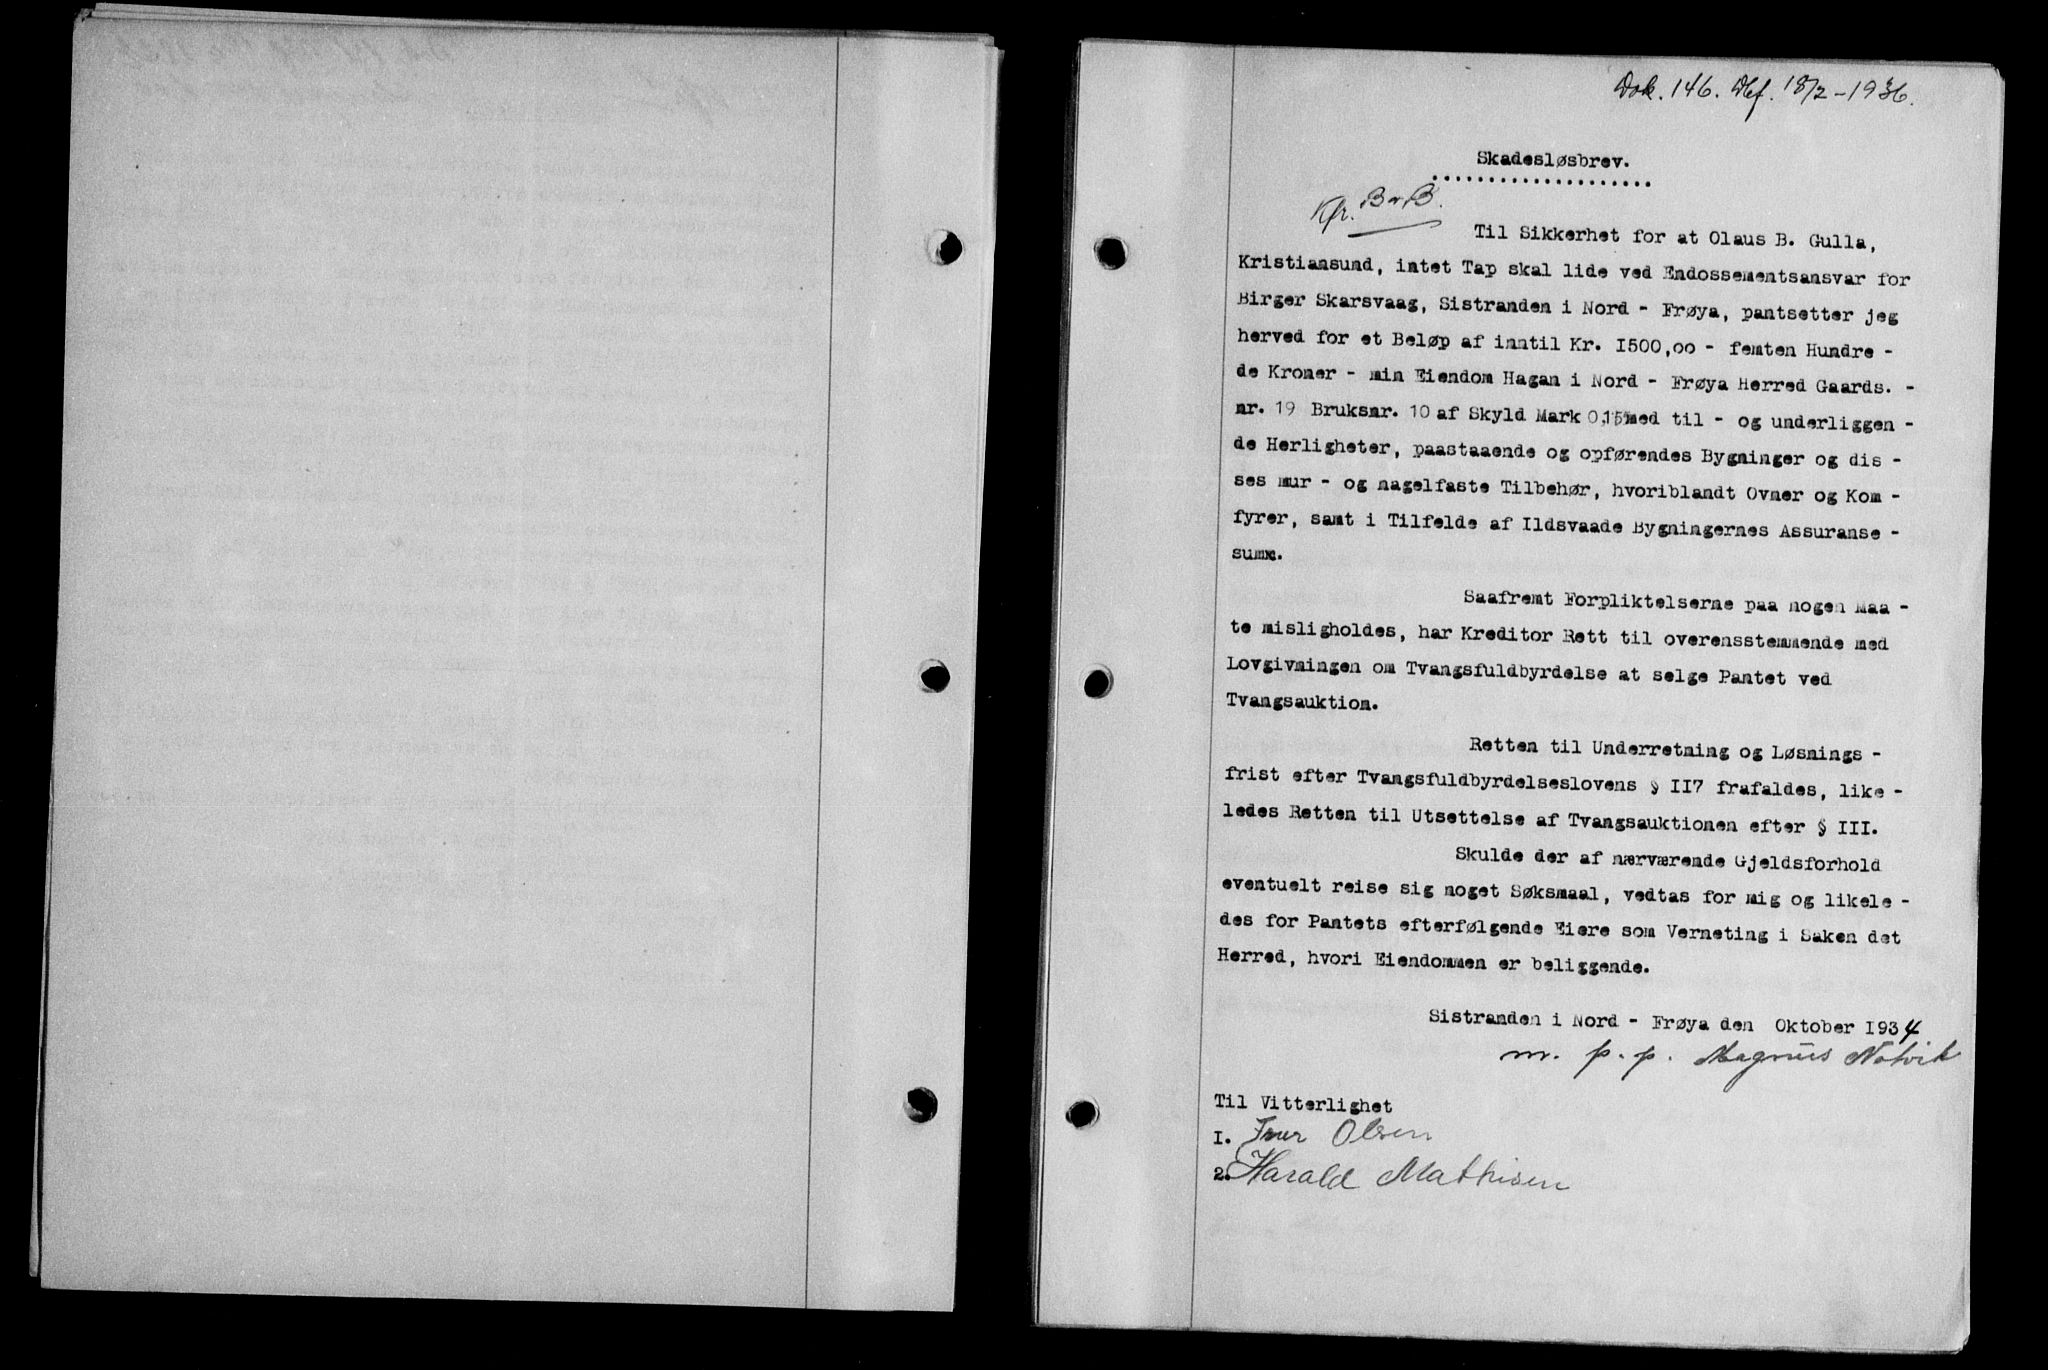 Dok. 146. Dbf. 18/2-1936.
Skadesløsbrev.
Kfr. B & B.
Til Sikkerhet for at Olaus B. Gulla,
Kristiansund, intet Tap skal lide ved Endossementsansvar for
Birger Skarsvaag, Sistranden i Nord - Frøya, pantsetter jeg
herved for et Beløp af inntil Kr. I500,oo - femten Hundre -
de Kroner - min Eiendom Hagan i Nord - Frøya Herred Gaards. -
nr. 19 Bruksnr. 10 af Skyld Mark 0,15 med til - og underliggen -
de Herligheter, paastaaende og opførendes Bygninger og dis -
ses mur - og nagelfaste Tilbehør, hvoriblandt Ovner og Kom -
fyrer, samt i Tilfelde af Ildsvaade Bygningernes Assuranse -
summ.
Saafremt Forpliktelserne paa nogen Maa -
te misligholdes, har Kreditor Rett til overensstemmende med
Lovgivningen om Tvangsfuldbyrdelse at selge Pantet ved
Tvangsauktion.
Retten til Underretning og Løsnings -
frist efter Tvangsfuldbyrdelseslovens § II7 frafaldes, like -
ledes Retten til Utsettelse af Tvangsauktionen efter § III.
Skulde der af nærværende Gjeldsforhold
eventuelt reise sig noget Søksmaal, vedtas for mig og likele -
des for Pantets efterfølgende Eiere som Verneting i Saken det
Herred, hvori Eiendommen er beliggende.
Sistranden i Nord - Frøya den Oktober I934
m. p. p. Magnus Notvik
Til Vitterlighet
I. Iver Olsen
2. Harald Mathisen